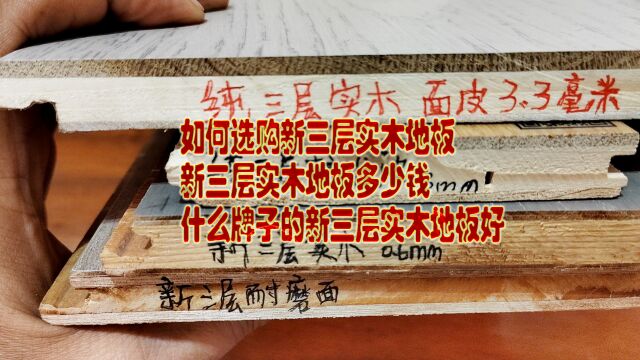 纯三层实木 面皮3.3毫米
如何选购新三层实木地板
新三层实木地板多少钱
什么牌子的新三层实木地板好
新三层实木 0.6mm
新三层耐磨面